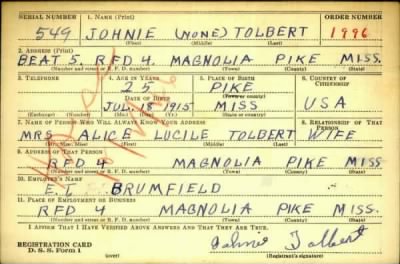 SERIAL NUMBER 1. NAME (Print) ORDER NUMBER
549 JOHNIE (NONE) TOLBERT 1996
(First) (Middle) (Last)
2. ADDRESS (Print)
BEAT 5. RFD 4. MAGNOLIA PIKE MISS.
(Number and street or R. F. D. number) (Town) (County) (State)
3. TELEPHONE 4. AGE IN YEARS 5. PLACE OF BIRTH 6. COUNTRY OF CITIZENSHIP
25 PIKE
DATE OF BIRTH (Town or county)
JUL 18 1915 MISS USA
(Exchange) (Number) (Mo.) (Day) (Yr.) (State or country)
7. NAME OF PERSON WHO WILL ALWAYS KNOW YOUR ADDRESS 8. RELATIONSHIP OF THAT PERSON
MRS ALICE LUCILE TOLBERT WIFE
(Mr., Mrs., Miss) (First) (Middle) (Last)
9. ADDRESS OF THAT PERSON
RFD 4 MAGNOLIA PIKE MISS
(Number and street or R. F. D. number) (Town) (County) (State)
10. EMPLOYER'S NAME
E.T. BRUMFIELD
11. PLACE OF EMPLOYMENT OR BUSINESS
RFD 4 MAGNOLIA PIKE MISS
(Number and street or R. F. D. number) (Town) (County) (State)
I AFFIRM THAT I HAVE VERIFIED ABOVE ANSWERS AND THAT THEY ARE TRUE.
REGISTRATION CARD
D. S. S. Form 1 (over) Johnie Tolbert
(Registrant's signature)